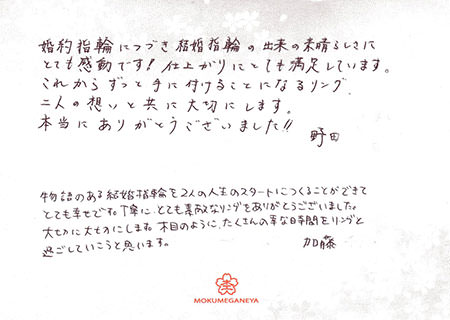 婚約指輪につづき結婚指輪の出来の素晴らしさに
とても感動です！仕上がりにとても満足しています。
これからずっと手に付けることになるリング、
二人の想いと共に大切にします。
本当にありがとうございました!!
野田
物語のある結婚指輪を2人の人生のスタートにつくることができて
とても幸せです。丁寧に、とても素敵なリングをありがとうございました。
大切に大切にします。木目のように、たくさんの幸な日時間をリングと
過ごしていこうと思います。
加藤
MOKUMEGANEYA